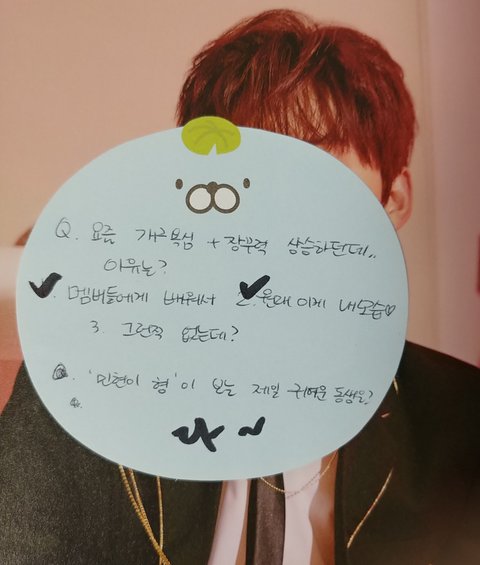 Q. 요즘 개그욕심 + 장꾸력 상승하던데..
이유는?
✔. 멤버들에게 배워서 ✔. 원래 이게 내모습♡
3. 그런적 없는데?
Q. '민현이 형'이 보는 제일 귀여운 동생은?
a.
나~